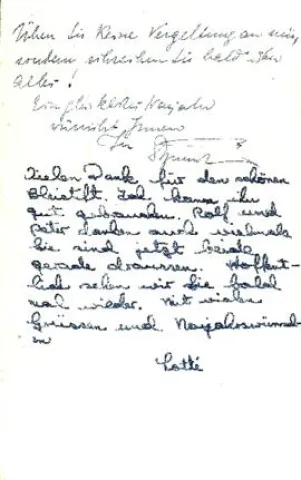 Üben Sie keine Vergeltung an mir,
sondern schreiben Sie bald über
alles!
Ein glückliches Neujahr
wünscht Ihnen
Ihr
Vielen Dank für den schönen
Bleistift. Ich kann ihn
gut gebrauchen. Rolf und
Peter danken auch vielmals
sie sind jetzt beide
gerade draussen. Hoffent-
lich sehen wir Sie bald
mal wieder. Mit vielen
Grüssen und Neujahrswünsch-
en
Lotte